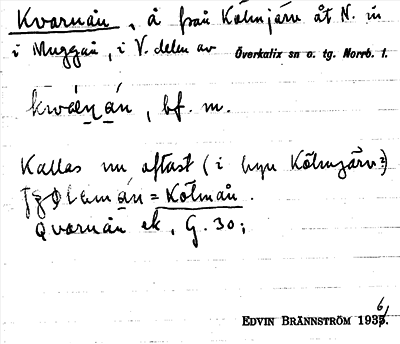 Kvarnån, å från Kölmjärv åt N. in
i Muggån, i V. delen av Överkalix sn o. tg. Norrb. l.
bf. m.
Kallas nu oftast (i byn Kölmjärv?)
= Kölmån.
Qvarnån ek. G. 30;
EDVIN BRÄNNSTRÖM 1936.